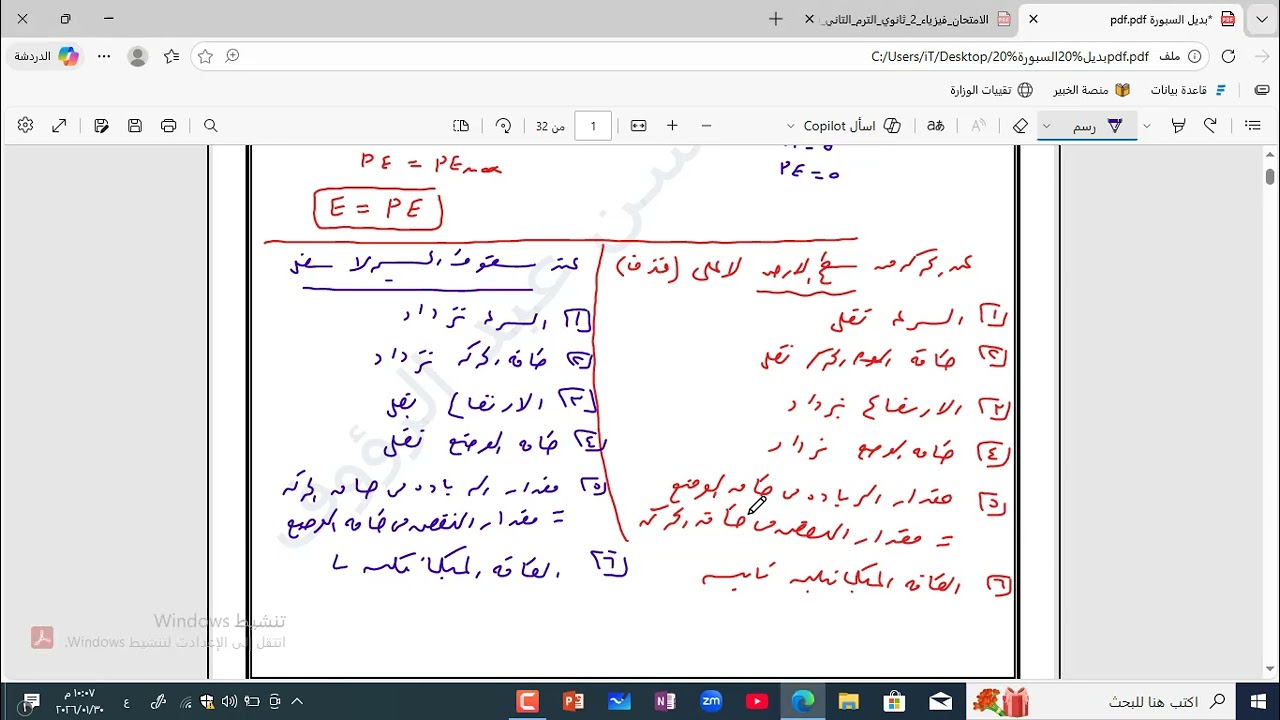 *بديل السبورة pdf.pdf
الامتحان_فيزياء_2_ثانوي_الترم_الثاني
ملف
C:/Users/iT/Desktop/20%بديل%20السبورةpdf.pdf
الدردشة
قاعدة بيانات
منصة الخبير
تقنيات الوزارة
رسم
اسأل Copilot
1 من 32
PE = 0
PE = PEmax
E = PE
عند الحركه من سطح الارض لاعلى (قذف)
[1] السرعه تقل
[2] طاقه الحركه تقل
[3] الارتفاع يزداد
[4] طاقه الوضع تزداد
[5] مقدار الزياده في طاقه الوضع
= مقدار النقص في طاقه الحركه
[6] الطاقه الميكانيكيه ثابته
عند سقوط الجسم لاسفل
[1] السرعه تزداد
[2] طاقه الحركه تزداد
[3] الارتفاع يقل
[4] طاقه الوضع تقل
[5] مقدار الزياده في طاقه الحركه
= مقدار النقص في طاقه الوضع
[6] الطاقه الميكانيكيه
تنشيط Windows
انتقل إلى الإعدادات لتنشيط Windows.
اكتب هنا للبحث
١٠:٠٧ م
٢٠٢٦/٠١/٣٠